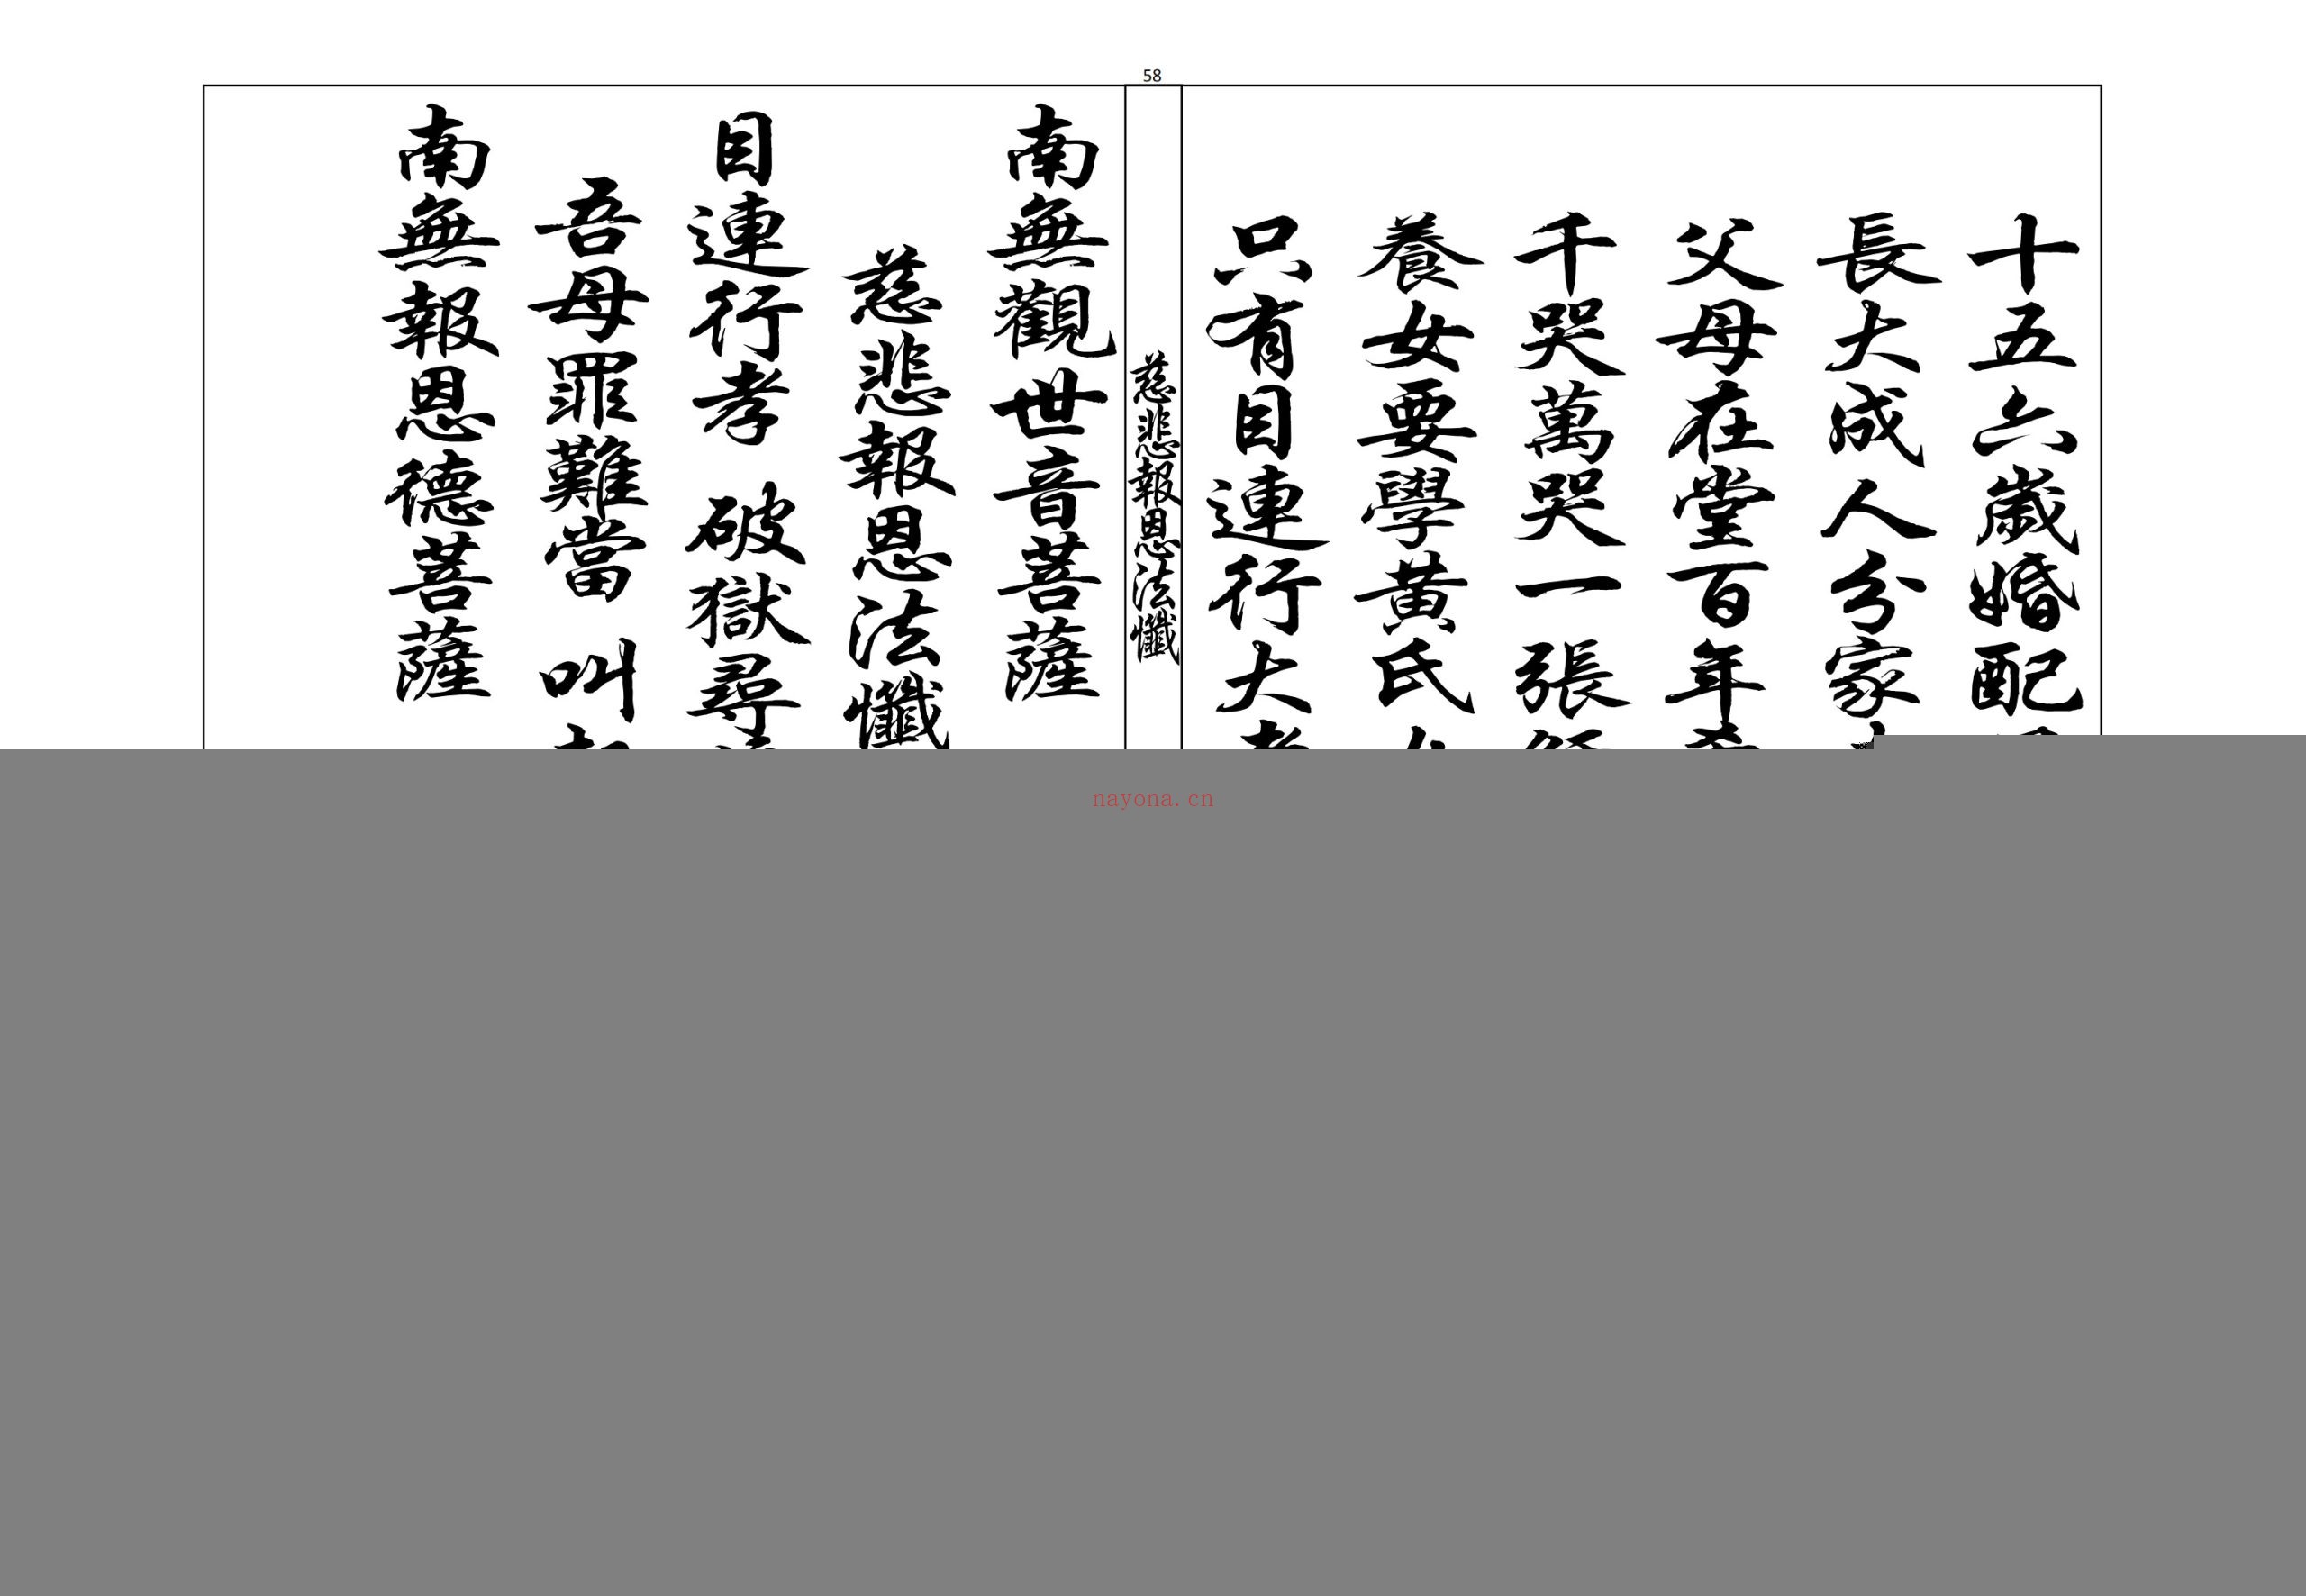 58
十五六歲婚配
長大成人分家
父母在堂百年
千哭萬哭一張
養女要學黃氏
只有目連行大
慈悲報恩法懺
南無觀世音菩薩
慈悲報恩法懺
目連行孝 破獄尋
吾母罪難當 叫
南無報恩德菩薩
nayona.cn